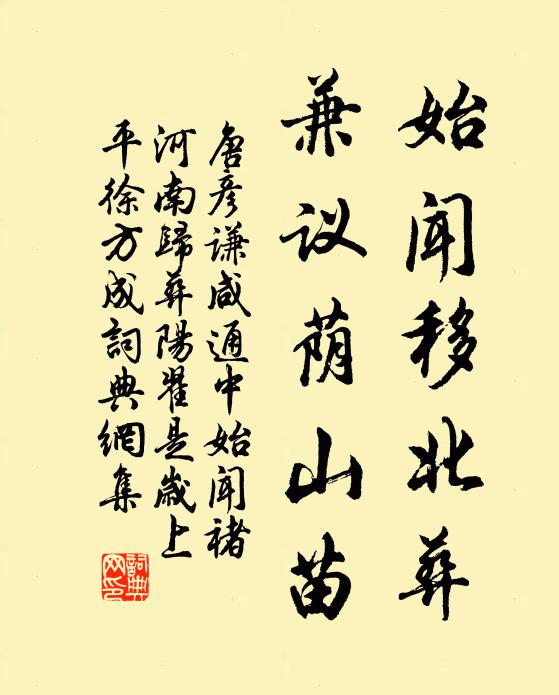 始闻移北葬
兼议荫山苗
唐彦謙咸通中始闻褚
河南歸葬陽翟是歲上
平徐方成詞典網集
詞典网印